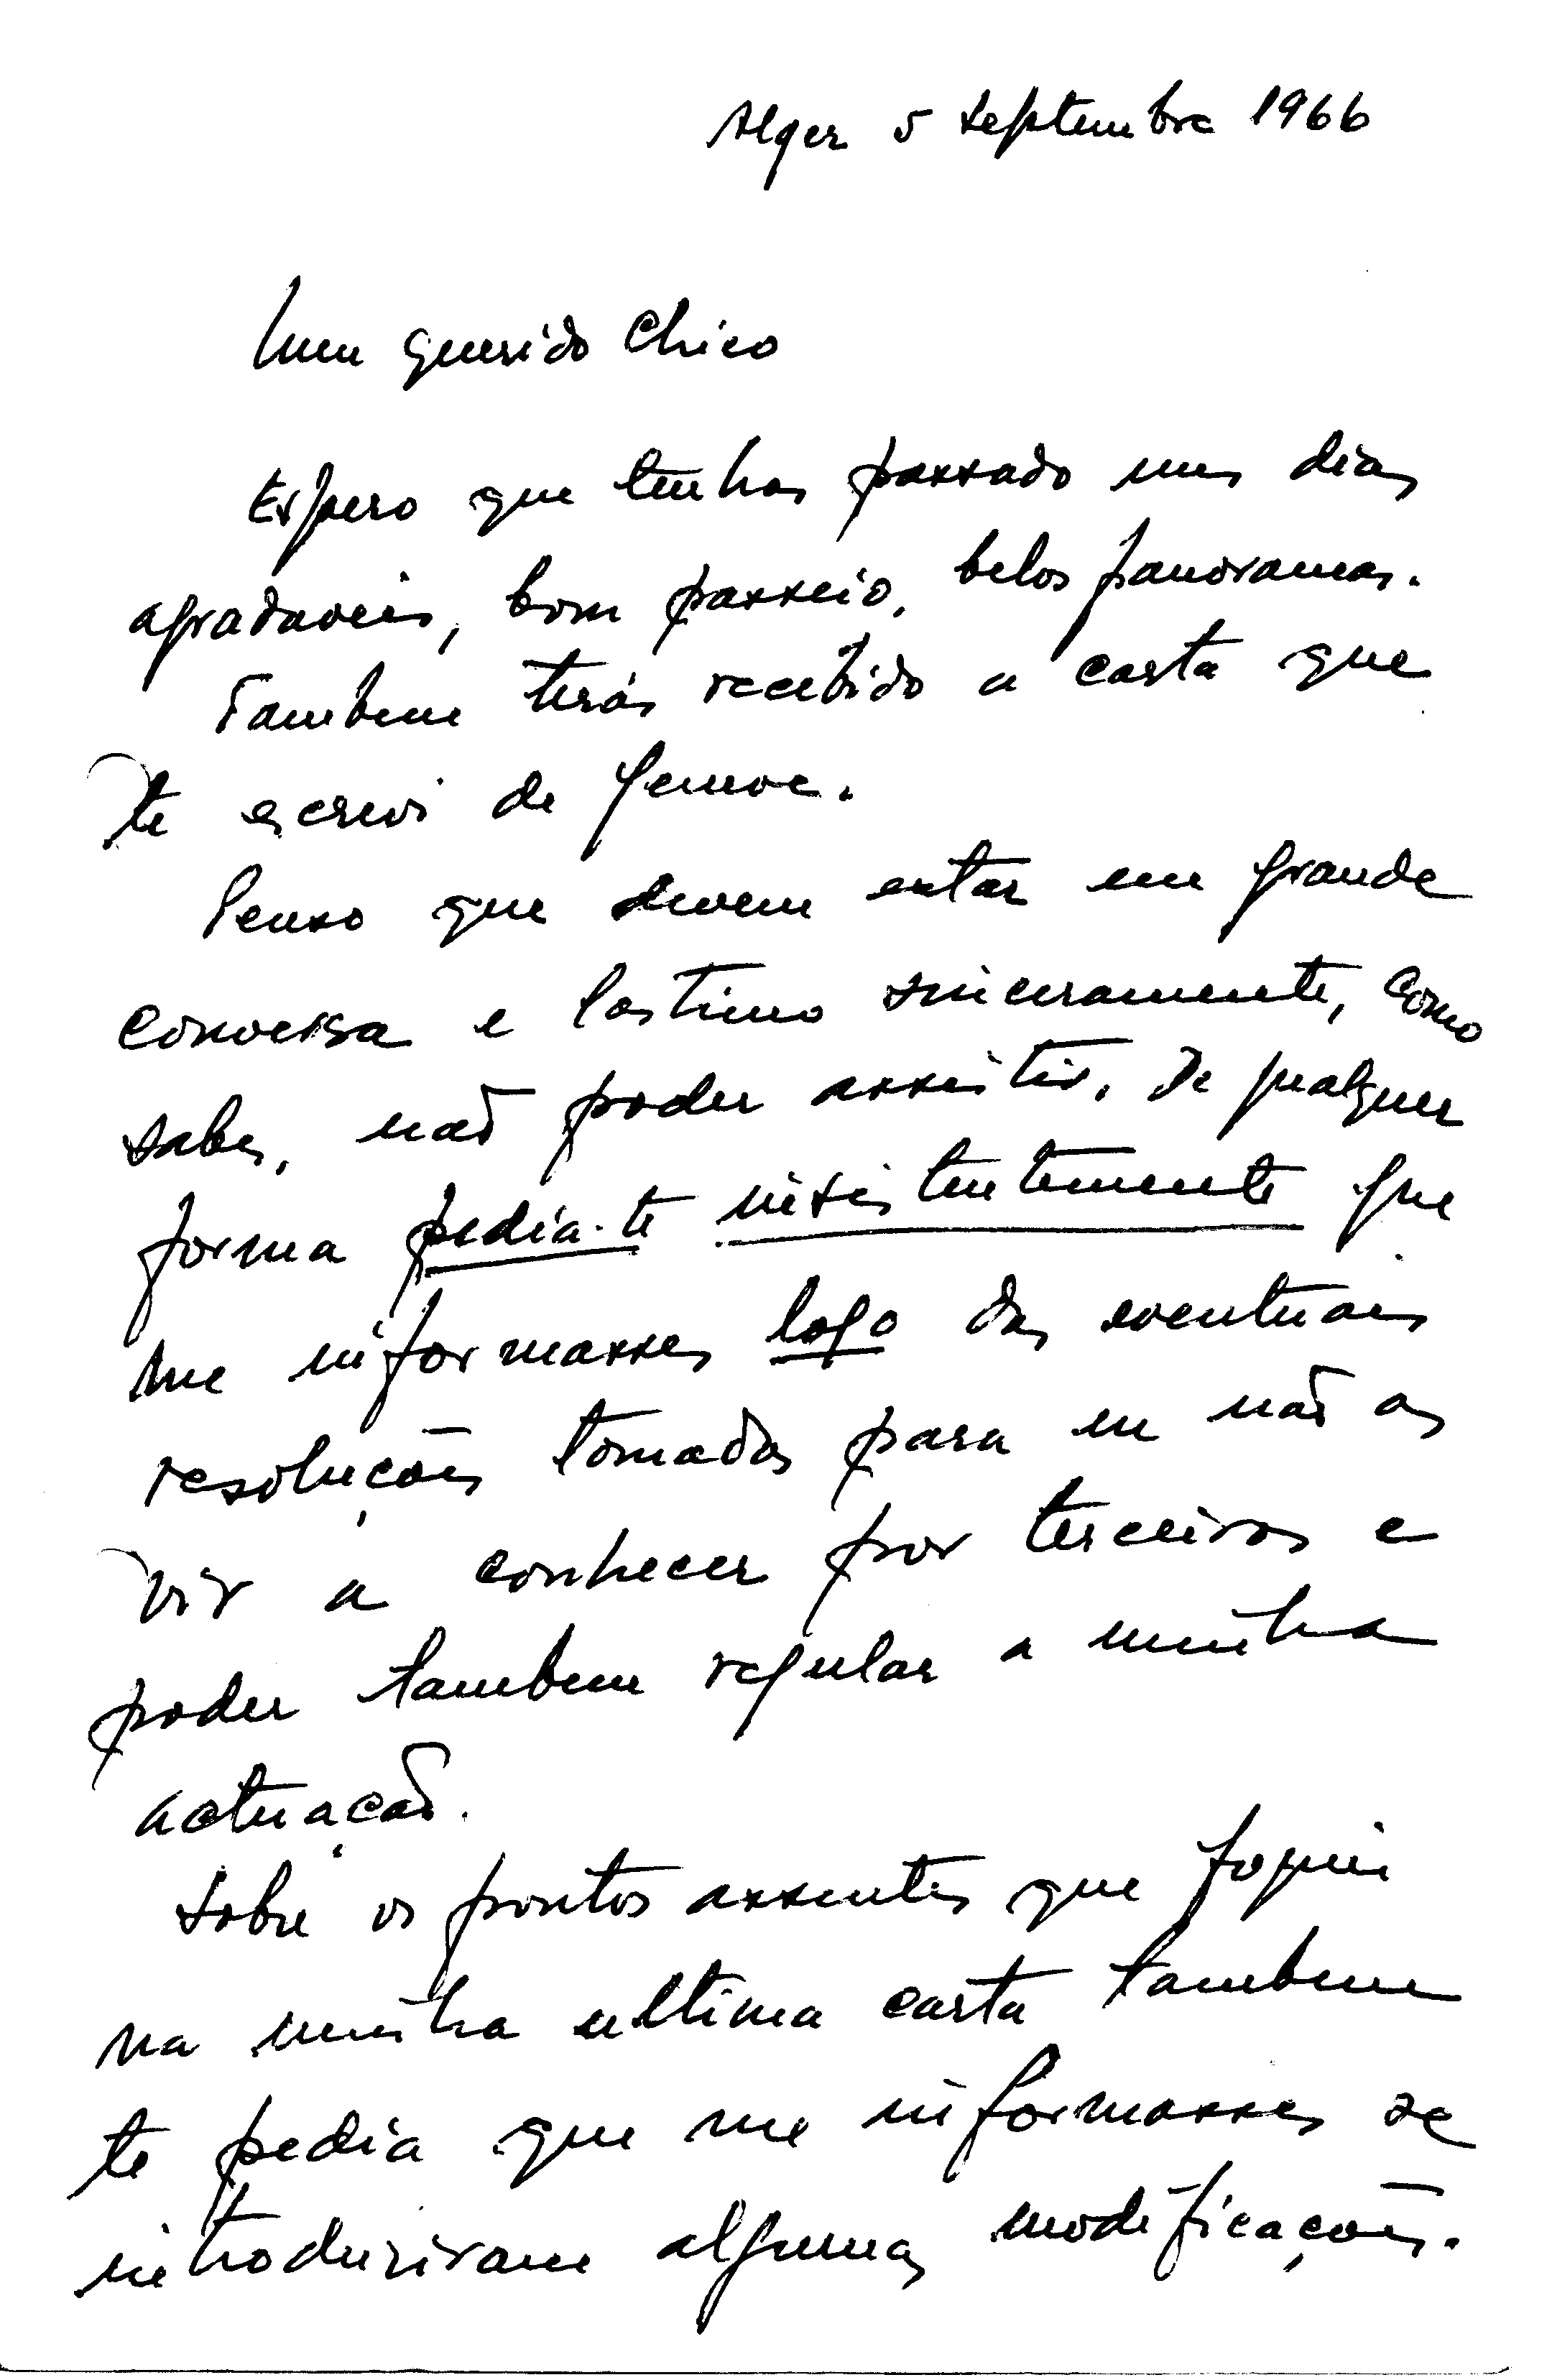 Alger 5 septembre 1966
Meu querido Chico
Espero que tenhas passado uns dias
agradaveis, bom passeio, belos panoramas.
Tambem terás recebido a carta que
te escrevi de Genove.
Penso que devem estar em grande
conversa e lastimo sinceramente, como
sabes, não poder assistir. De qualquer
forma pedia-te insistentemente que
me informasses logo das eventuais
resoluções tomadas para eu não as
vir a conhecer por terceiros e
poder tambem regular a minha
actuação.
Sobre os pontos assentes que foquei
na minha ultima carta tambem
te pedia que me informasses se
introduziram algumas modificações.